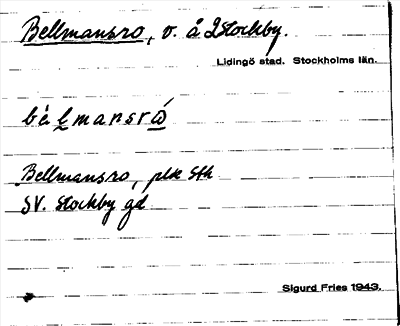 Bellmansro, v. å Stockby.
Lidingö stad. Stockholms län.
Bellmansro, plk Sth
SV. Stockby gd
Sigurd Fries 1943.